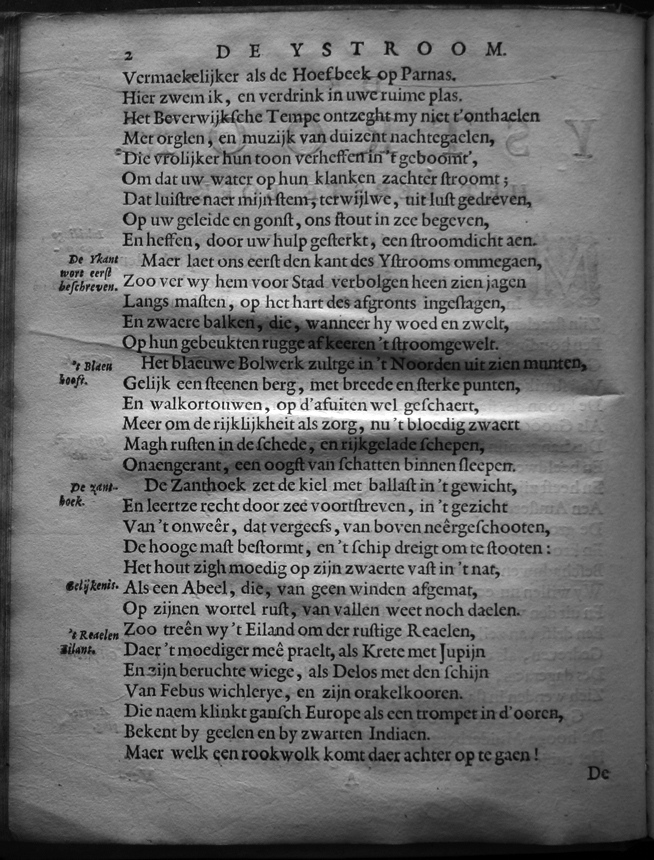 2 DE YSTROOM.
Vermaekelijker als de Hoefbeek op Parnas.
Hier zwem ik, en verdrink in uwe ruime plas.
Het Beverwijkſche Tempe ontzeght my niet t'onthaelen
Met orglen, en muzijk van duizent nachtegaelen,
Die vrolijker hun toon verheffen in 't geboomt',
Om dat uw water op hun klanken zachter ſtroomt;
Dat luiſtre naer mijn ſtem, terwijl we, uit luſt gedreven,
Op uw geleide en gonſt, ons ſtout in zee begeven,
En heffen, door uw hulp geſterkt, een ſtroomdicht aen.
De Ykant
wort eerſt
beſchreven.
Maer laet ons eerſt den kant des Yſtrooms ommegaen,
Zoo ver wy hem voor Stad verbolgen heen zien jagen
Langs maſten, op het hart des afgronts ingeſlagen,
En zwaere balken, die, wanneer hy woed en zwelt,
Op hun gebeukten rugge af keeren 't ſtroomgewelt.
't Blaeu
hooft.
Het blaeuwe Bolwerk zultge in 't Noorden uit zien munten,
Gelijk een ſteenen berg, met breede en ſterke punten,
En walkortouwen, op d'afuiten wel geſchaert,
Meer om de rijklijkheit als zorg, nu 't bloedig zwaert
Magh ruſten in de ſchede, en rijkgelade ſchepen,
Onaengerant, een oogſt van ſchatten binnen ſleepen.
De zant-
hoek.
De Zanthoek zet de kiel met ballaſt in 't gewicht,
En leertze recht door zee voortſtreven, in 't gezicht
Van 't onweêr, dat vergeefs, van boven neêrgeſchooten,
De hooge maſt beſtormt, en 't ſchip dreigt om te ſtooten:
Het hout zigh moedig op zijn zwaerte vaſt in 't nat,
Gelijkenis.
Als een Abeel, die, van geen winden afgemat,
Op zijnen wortel ruſt, van vallen weet noch daelen.
't Reaelen
Eilant.
Zoo treên wy 't Eiland om der ruſtige Reaelen,
Daer 't moediger meê praelt, als Krete met Jupijn
En zijn beruchte wiege, als Delos met den ſchijn
Van Febus wichlerye, en zijn orakelkooren.
Die naem klinkt ganſch Europe als een trompet in d'ooren,
Bekent by geelen en by zwarten Indiaen.
Maer welk een rookwolk komt daer achter op te gaen!
De